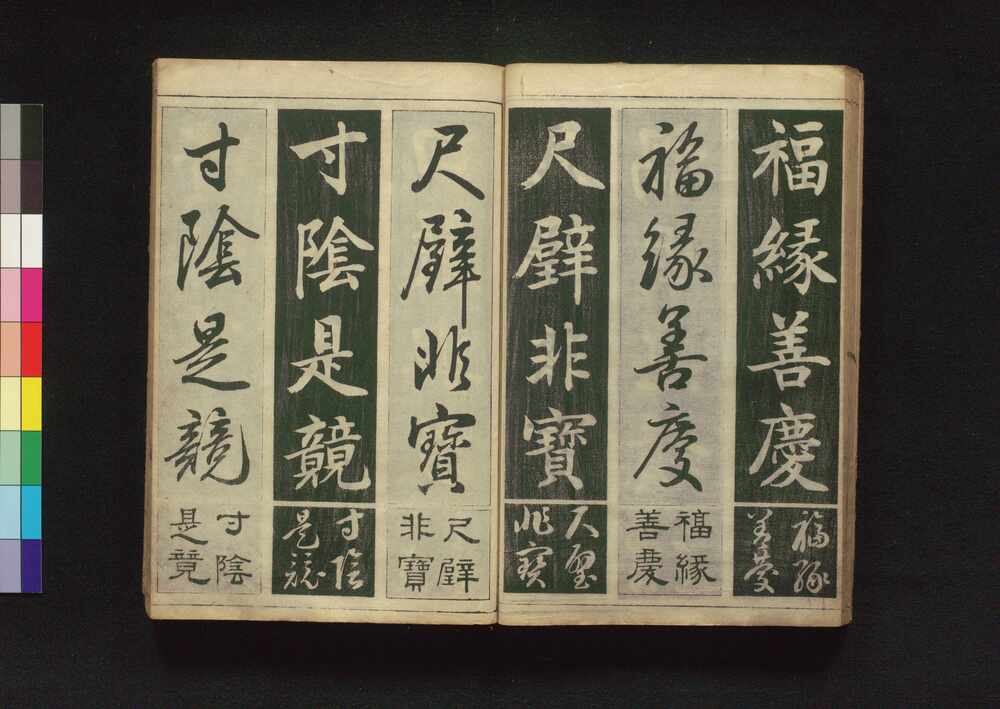 福緣善慶
福緣
善慶
福緣善慶
福緣
善慶
尺璧非寶
尺璧
非寶
尺璧非寶
尺璧
非寶
寸陰是競
寸陰
是競
寸陰是競
寸陰
是競